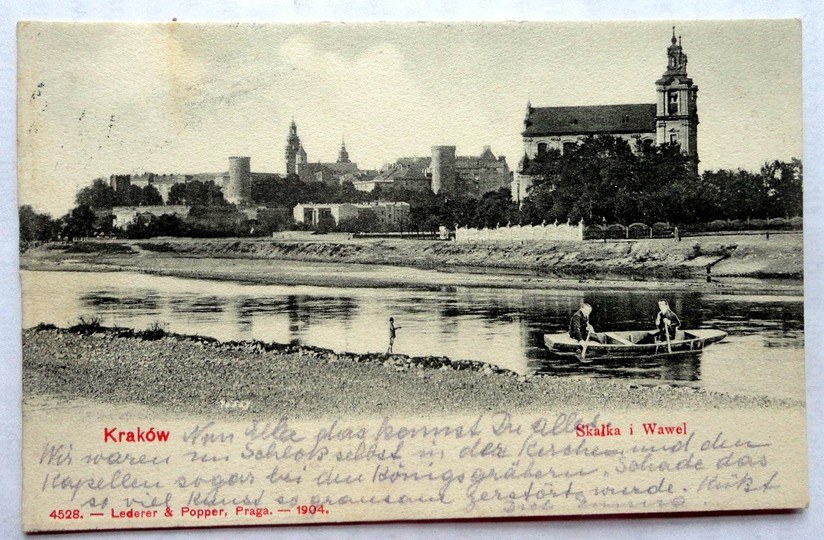 Kraków
Skałka i Wawel
Nun Elle das kannst Du alles
Wir waren im Schloß selbst in der Kirche und den
Kapellen sogar bei den Königsgräbern. Schade das
so viel Kunst so grausam zerstört wurde. Küßt
Dich
4528. — Lederer & Popper, Praga. — 1904.